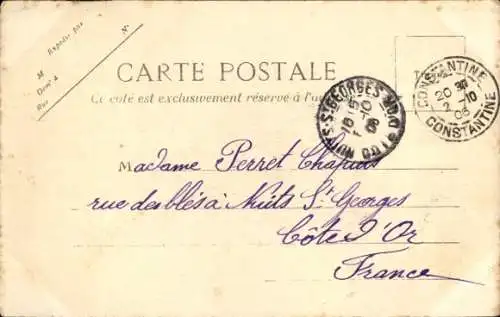 M Expédié par
Demt à
Rue
N°
CARTE POSTALE
Ce côté est exclusivement réservé à l'a
NUITS-S-GEORGES
COTE D'OR
CONSTANTINE
20 30
2 -10
05
CONSTANTINE
Madame Perret Chapuis
rue des blés à Nuits St Georges
Côte d'Or
France